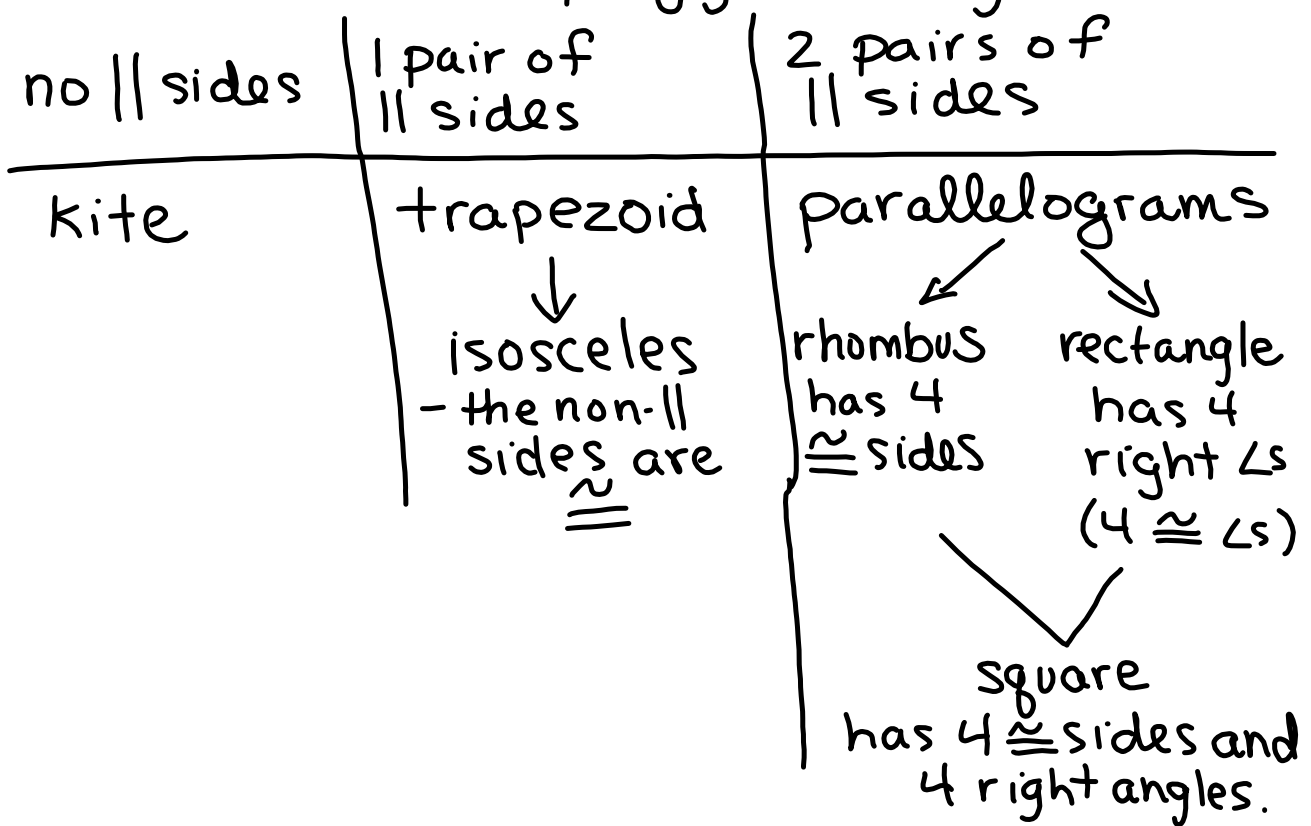 no || sides
1 pair of
|| sides
2 pairs of
|| sides
kite
trapezoid
isosceles
- the non-||
sides are
≅
parallelograms
rhombus
has 4
≅ sides
rectangle
has 4
right ∠s
(4 ≅ ∠s)
square
has 4 ≅ sides and
4 right angles.